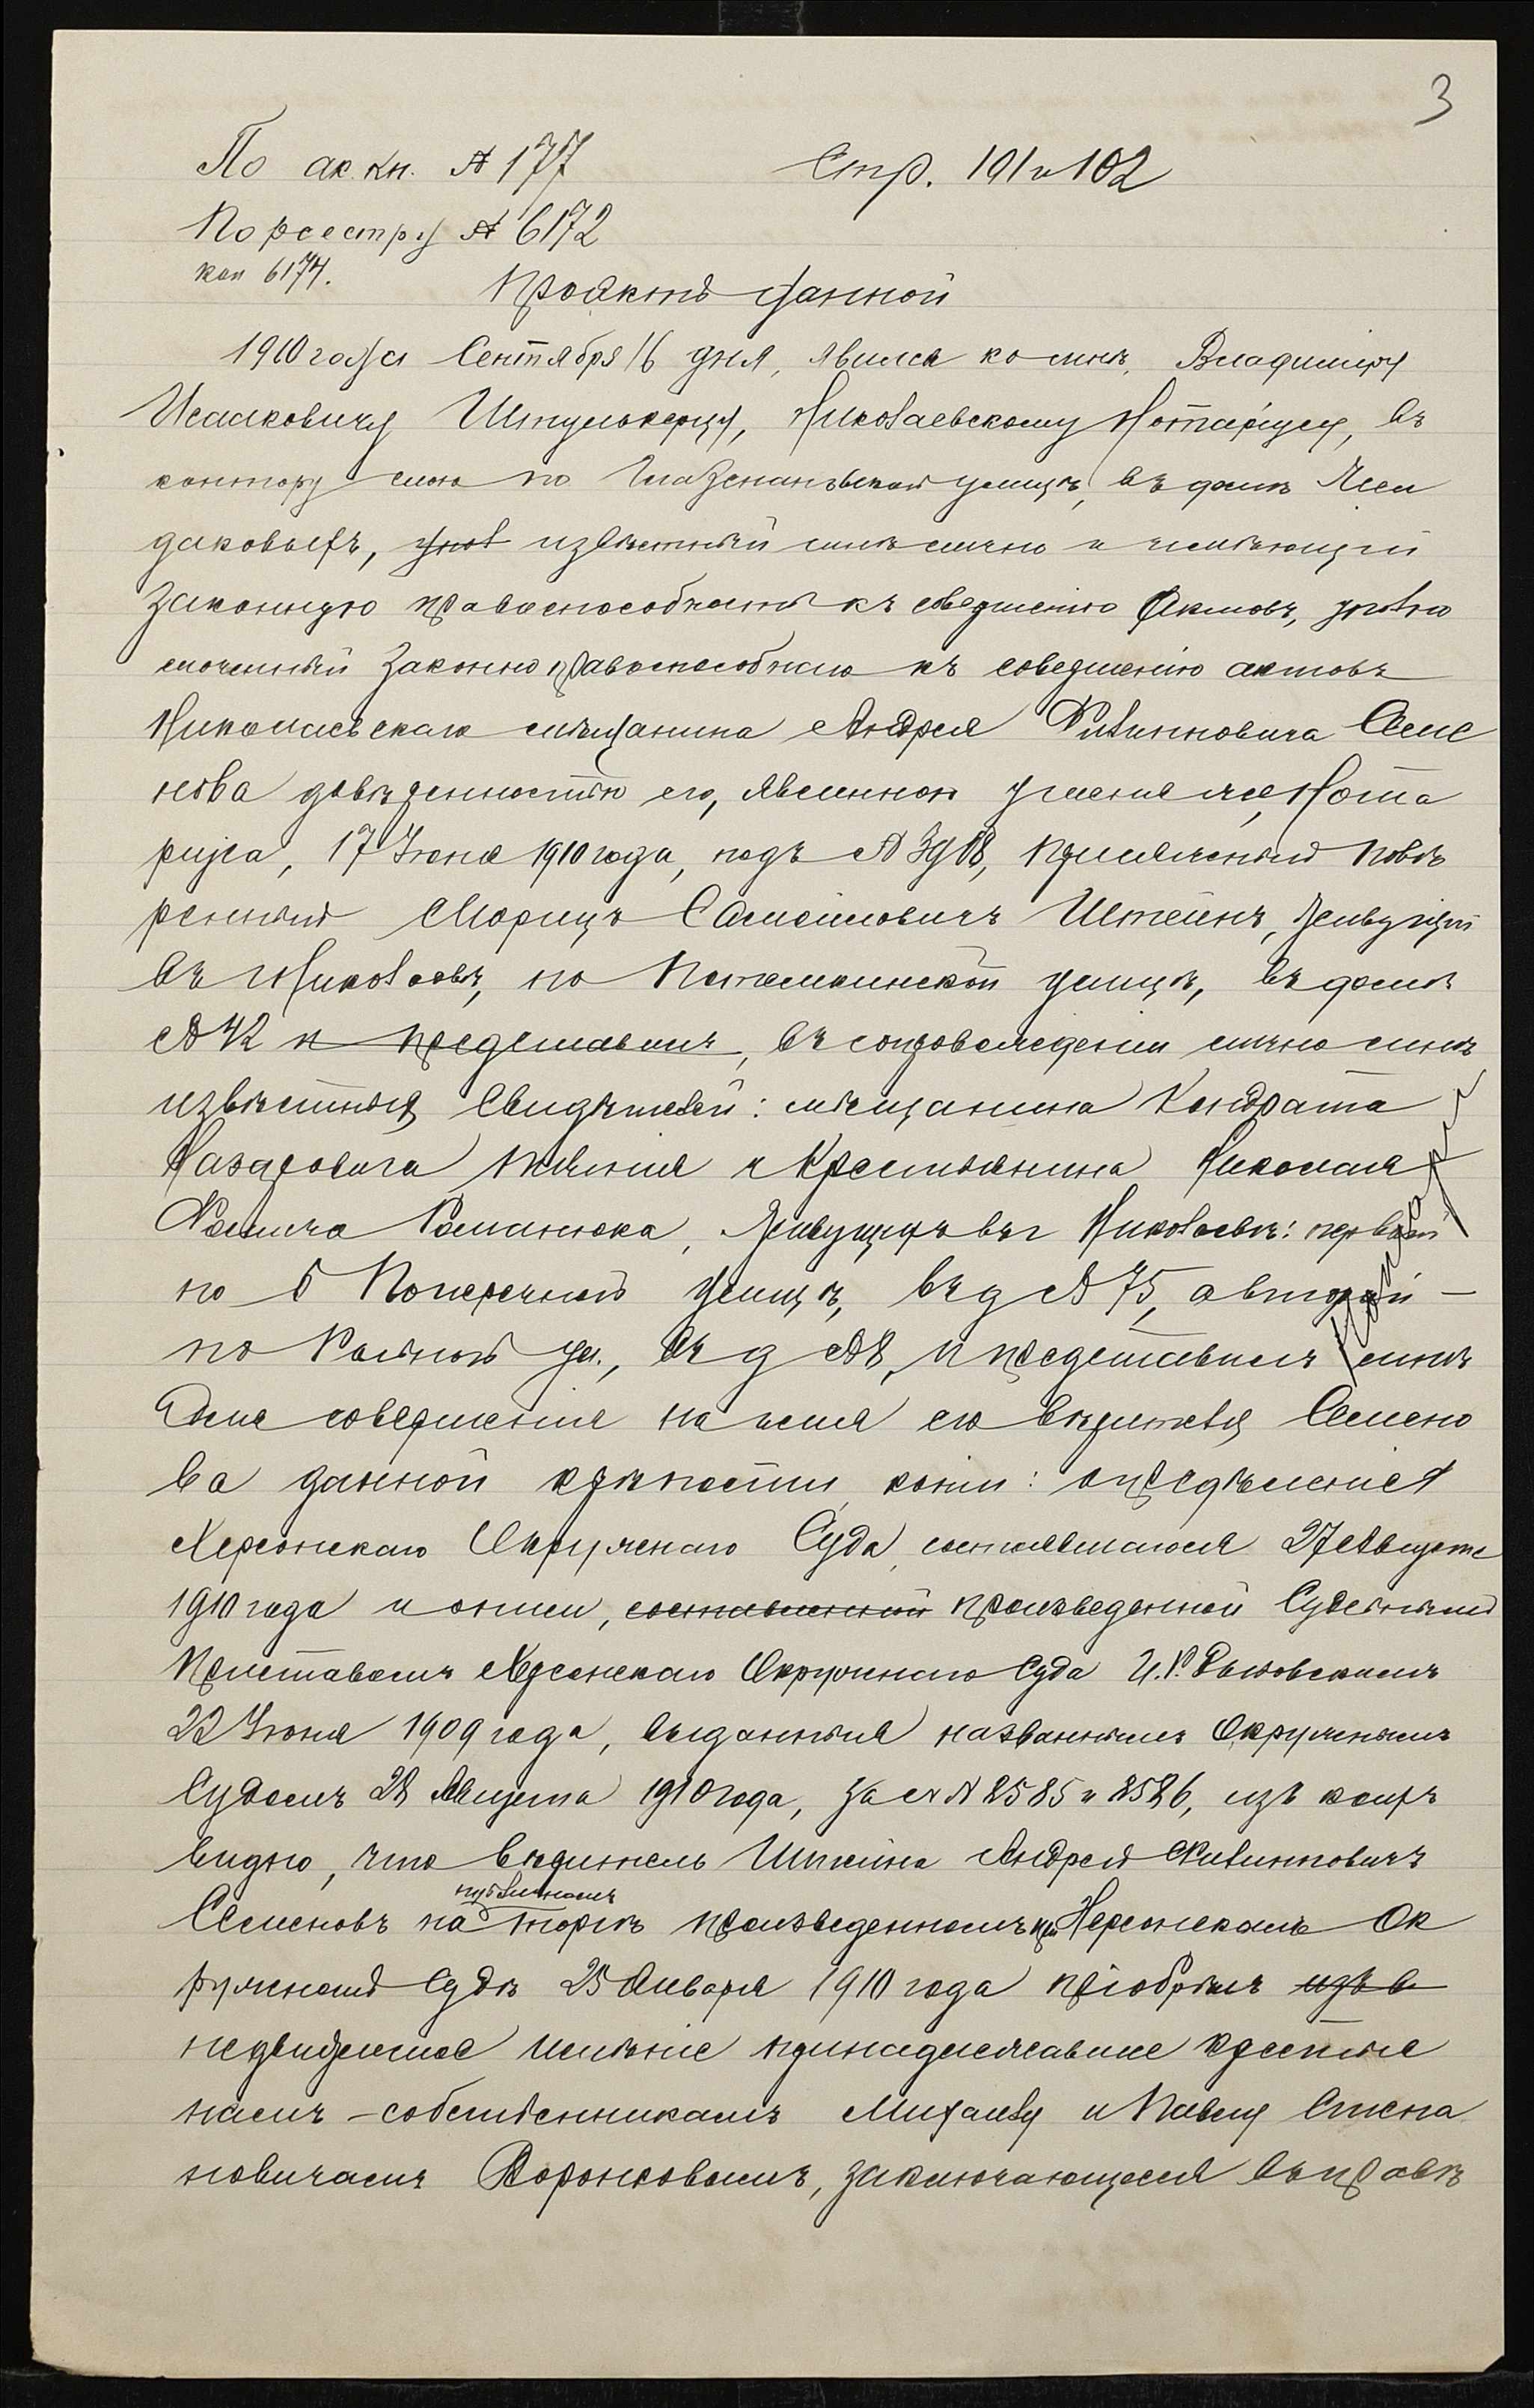 3
По ак. кн. № 177 Стр. 101 и 102
По реестру № 6172
коп 6174.
Проектъ данной
1910 года Сентября 16 дня, явился ко мнѣ, Владиміру
Исааковичу Штулькерцу, Николаевскому Нотаріусу, въ
контору мою по Глазенаповской улицѣ, въ домѣ
даковыхъ, упол извѣстный мнѣ лично и имѣющій
законную правоспособность къ совершенію актовъ, уполно
моченный законно правоспособнаго къ совершенію актовъ
Николаевскаго мѣщанина Андрея Филипповича Семе
нова довѣренностью его, явленною у меня, Нота
ріуса, 17 Іюня 1910 года, подъ № 3908, Присяжный Повѣ
ренный Морицъ Самойловичъ Штейнъ, живущій
въ г Николаевѣ, по Потемкинской улицѣ, въ домѣ
№ 42 и представилъ, въ сопровожденіи лично мнѣ
извѣстныхъ свидѣтелей: мѣщанина Кондрата
Назаровича и крестьянина Николая
Романюка, живущихъ въ г Николаевѣ: первый
по 5 Поперечной улицѣ, въ д № 75, а второй —
по ул., въ д № 8, и представилъ мнѣ
для совершенія на имя его вѣрителя Семено
ва данной крѣпости копіи: опредѣленія
Херсонскаго Окружнаго Суда, состоявшагося 27 Августа
1910 года и описи, составленной произведенной Судебнымъ
Приставомъ Херсонскаго Окружнаго Суда И. К. Быковскимъ
22 Іюня 1909 года, выданныя названнымъ Окружнымъ
Судомъ 28 Августа 1910 года, за №№ 2585 и 2586, изъ коихъ
видно, что вѣритель Штейна Андрей Филипповичъ
публичномъ
Семеновъ на торгѣ произведенномъ при Херсонскомъ Ок
ружномъ Судѣ 25 Января 1910 года пріобрѣлъ изъ в
недвижимое имѣніе принадлежавшее крестья
намъ-собственникамъ Михаилу и Павлу Степа
новичамъ Воронковымъ, заключающееся въ правѣ